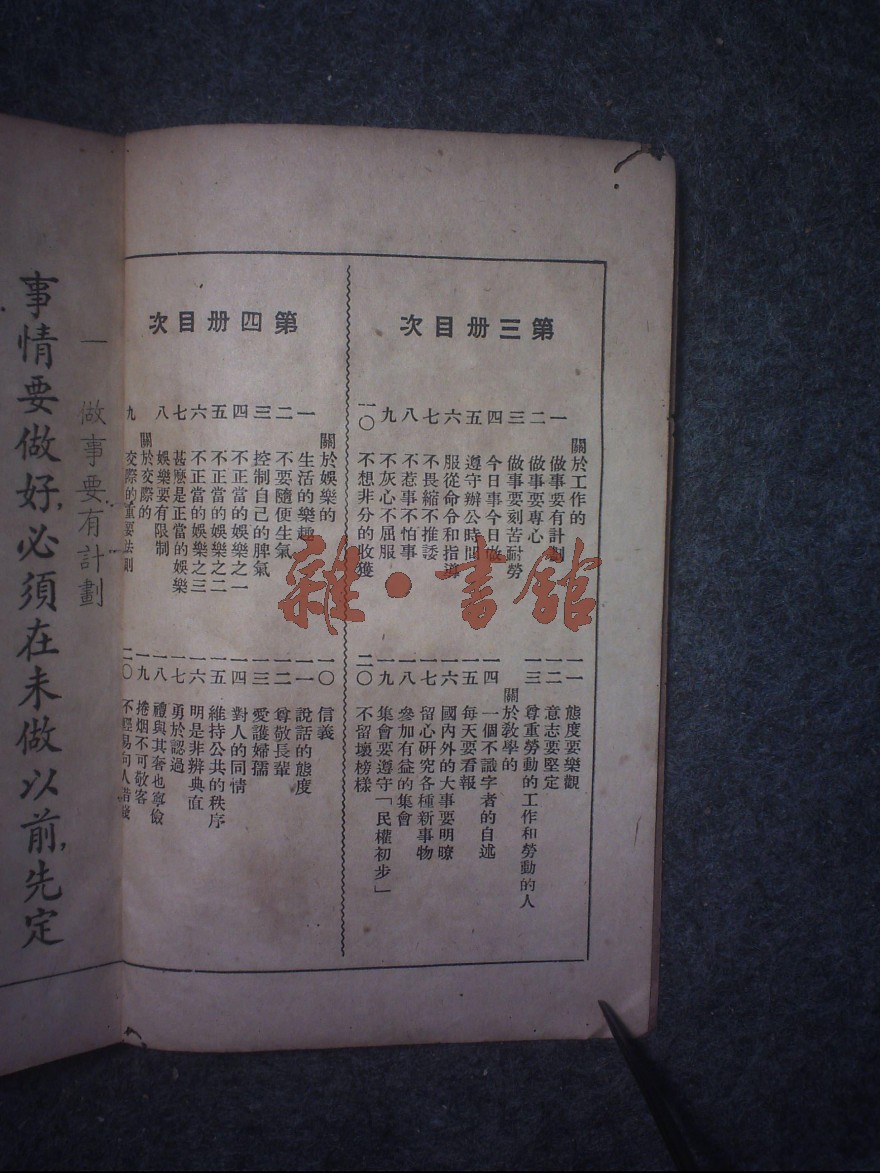 第三册目次
關於工作的
一 做事要有計劃
二 做事要專心
三 做事要刻苦耐勞
四 今日事今日做
五 遵守辦公時間
六 服從命令和指導
七 不畏縮不推諉
八 不惹事不怕事
九 不灰心不屈服
一〇 不想非分的收獲
一一 態度要樂觀
一二 意志要堅定
一三 尊重勞動的工作和勞動的人
關於教學的
一四 一個不識字者的自述
一五 每天要看報
一六 國內外的大事要明瞭
一七 留心研究各種新事物
一八 參加有益的集會
一九 集會要遵守「民權初步」
二〇 不留壞榜樣
第四册目次
關於娛樂的
一 生活的樂趣
二 不要隨便生氣
三 控制自己的脾氣
四 不正當的娛樂之一
五 不正當的娛樂之二
六 不正當的娛樂之三
七 甚麽是正當的娛樂
八 娛樂要有限制
關於交際的
九 交際的重要法則
一〇 信義
一一 說話的態度
一二 尊敬長輩
一三 愛護婦孺
一四 對人的同情
一五 維持公共的秩序
一六 明是非辨典直
一七 勇於認過
一八 禮與其奢也寧儉
一九 捲烟不可敬客
二〇 不輕易向人借錢
一 做事要有計劃
事情要做好，必須在未做以前，先定
雜·書館